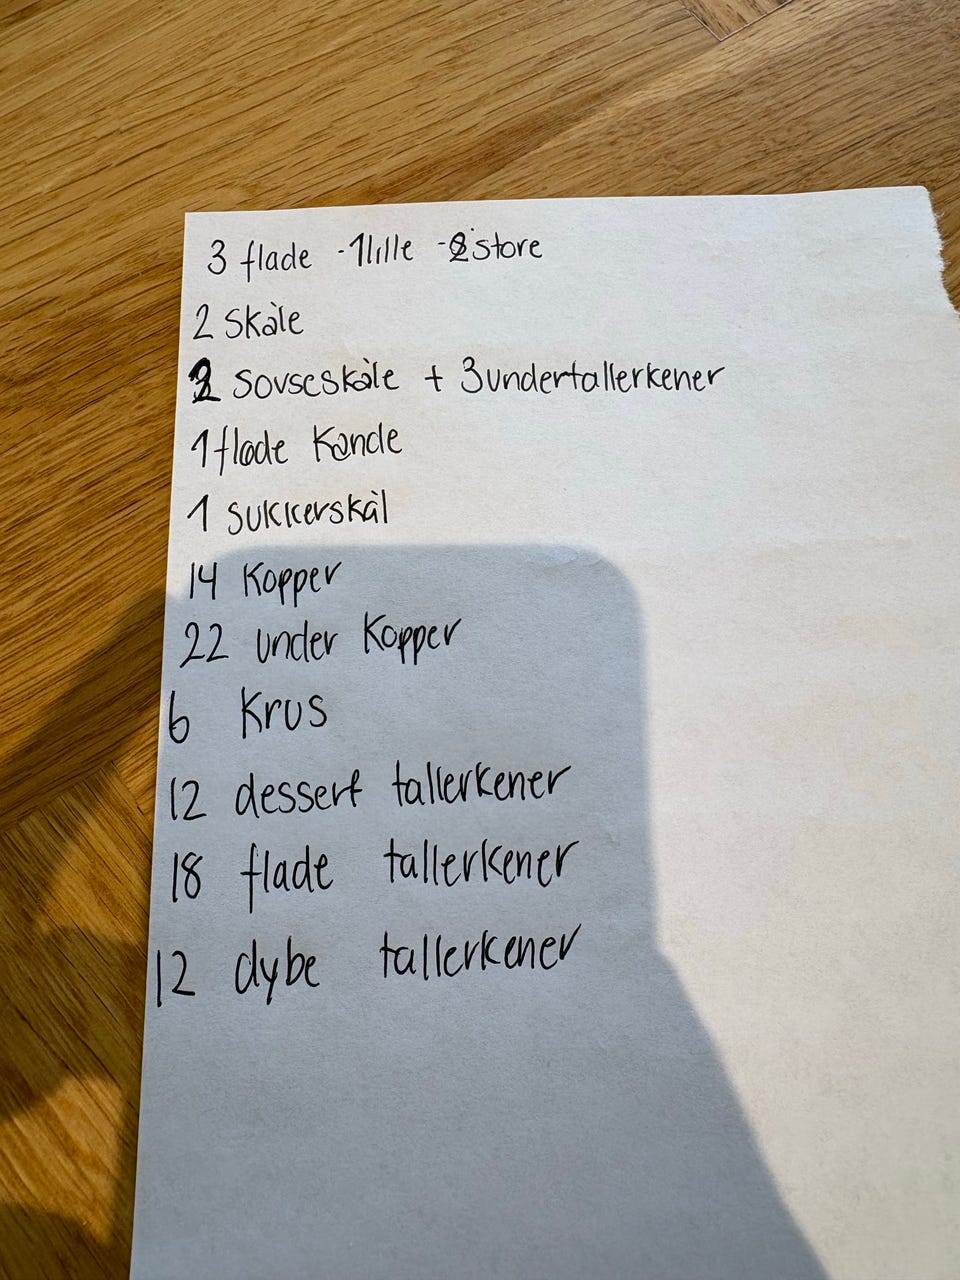 3 flade -1 lille -2 store
2 skåle
2 sovseskåle + 3 undertallerkener
1 fløde Kande
1 sukkerskål
14 Kopper
22 under Kopper
6 Krus
12 dessert tallerkener
18 flade tallerkener
12 dybe tallerkener